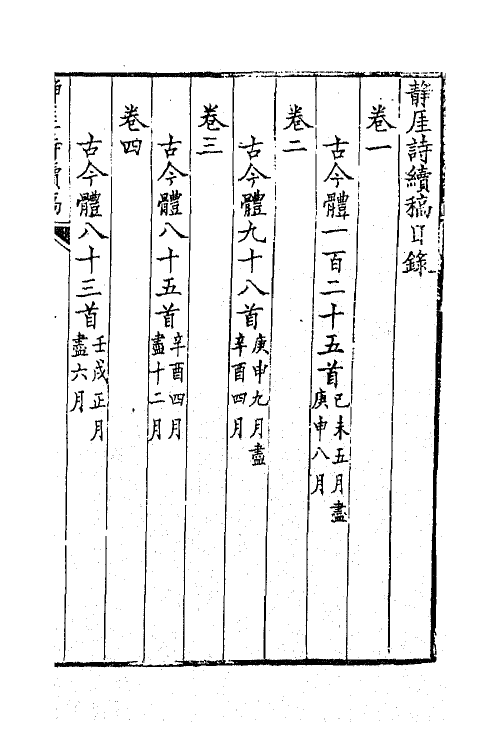 靜厓詩續稿目錄
卷一
古今體一百二十五首己未五月盡
庚申八月
卷二
古今體九十八首庚申九月盡
辛酉四月
卷三
古今體八十五首辛酉四月
盡十二月
卷四
古今體八十三首壬戌正月
盡六月